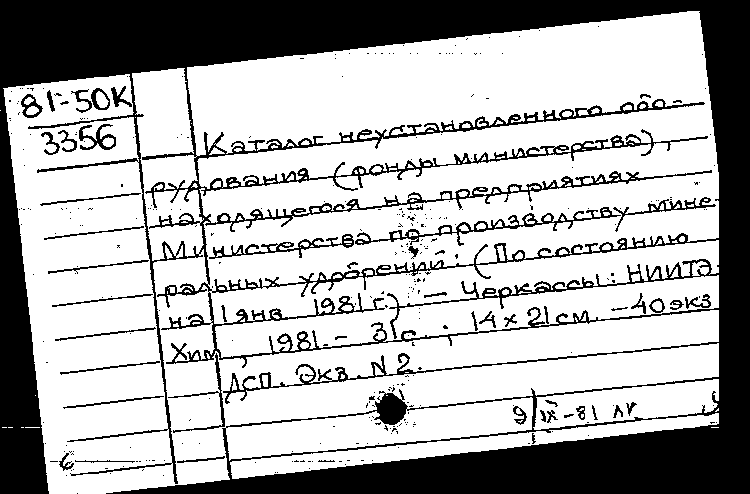 81-50К
3356
Каталог неустановленного обо-
рудования (фонды министерства),
находящегося на предприятиях
Министерства по производству мине
ральных удобрений: (По состоянию
на 1 янв. 1981 г.) — Черкассы: НИИТЭ
Хим, 1981. - 31с. ; 14 x 21 см. - 40 экз
ДСП. Экз. N 2.
9/IX-81
6